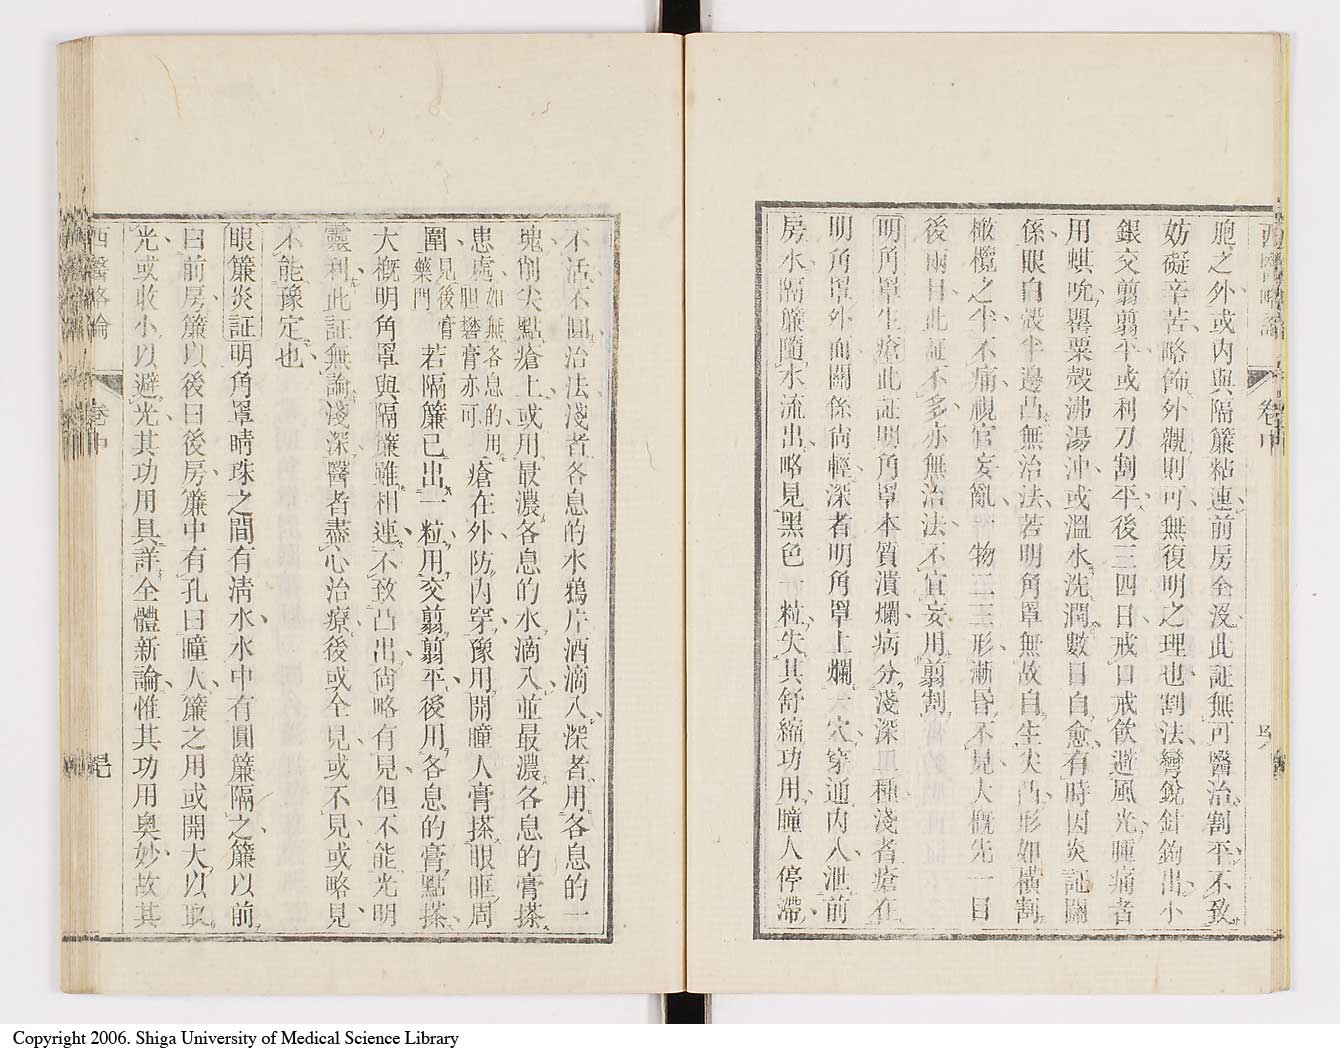 西醫略論 卷中
胞之外或内與隔簾粘連前房全沒此証無可醫治割平不致
妨礙辛苦略飾外觀則可無復明之理也割法彎銳針鉤出小
銀交翦翦半或利刀割平後三四日戒口戒飲避風光腫痛者
用蜞吮罌粟殼沸湯沖或溫水洗潤數日自愈有時因炎証關
係眼白殼半邊凸無治法若明角罩無故自生尖凸形如橫割
橄欖之半不痛視官妄亂一物二三形漸昏不見大概先一目
後兩目此証不多亦無治法不宜妄用翦割
明角罩生瘡此証明角罩本質潰爛病分淺深二種淺者瘡在
明角罩外面關係尚輕深者明角罩上爛一穴穿通内入泄前
房水隔簾隨水流出略見黑色一粒失其舒縮功用瞳人停滯
不活不圓治法淺者各息的水鴉片酒滴入深者用各息的一
塊削尖點瘡上或用最濃各息的水滴入並最濃各息的膏搽
患處如無各息的用胆礬膏亦可瘡在外防内穿豫用開瞳人膏搽眼眶周
圍見後膏藥門若隔簾已出一粒用交翦翦平後用各息的膏點搽
大概明角罩與隔簾雖相連不致凸出尚略有見但不能光明
靈利此証無論淺深醫者盡心治療後或全見或不見或略見
不能豫定也
眼簾炎証明角罩睛珠之間有清水水中有圓簾隔之簾以前
曰前房簾以後曰後房簾中有孔曰瞳人簾之用或開大以取
光或收小以避光其功用具詳全體新論惟其功用奥妙故其
西醫略論 卷中
Copyright 2006. Shiga University of Medical Science Library